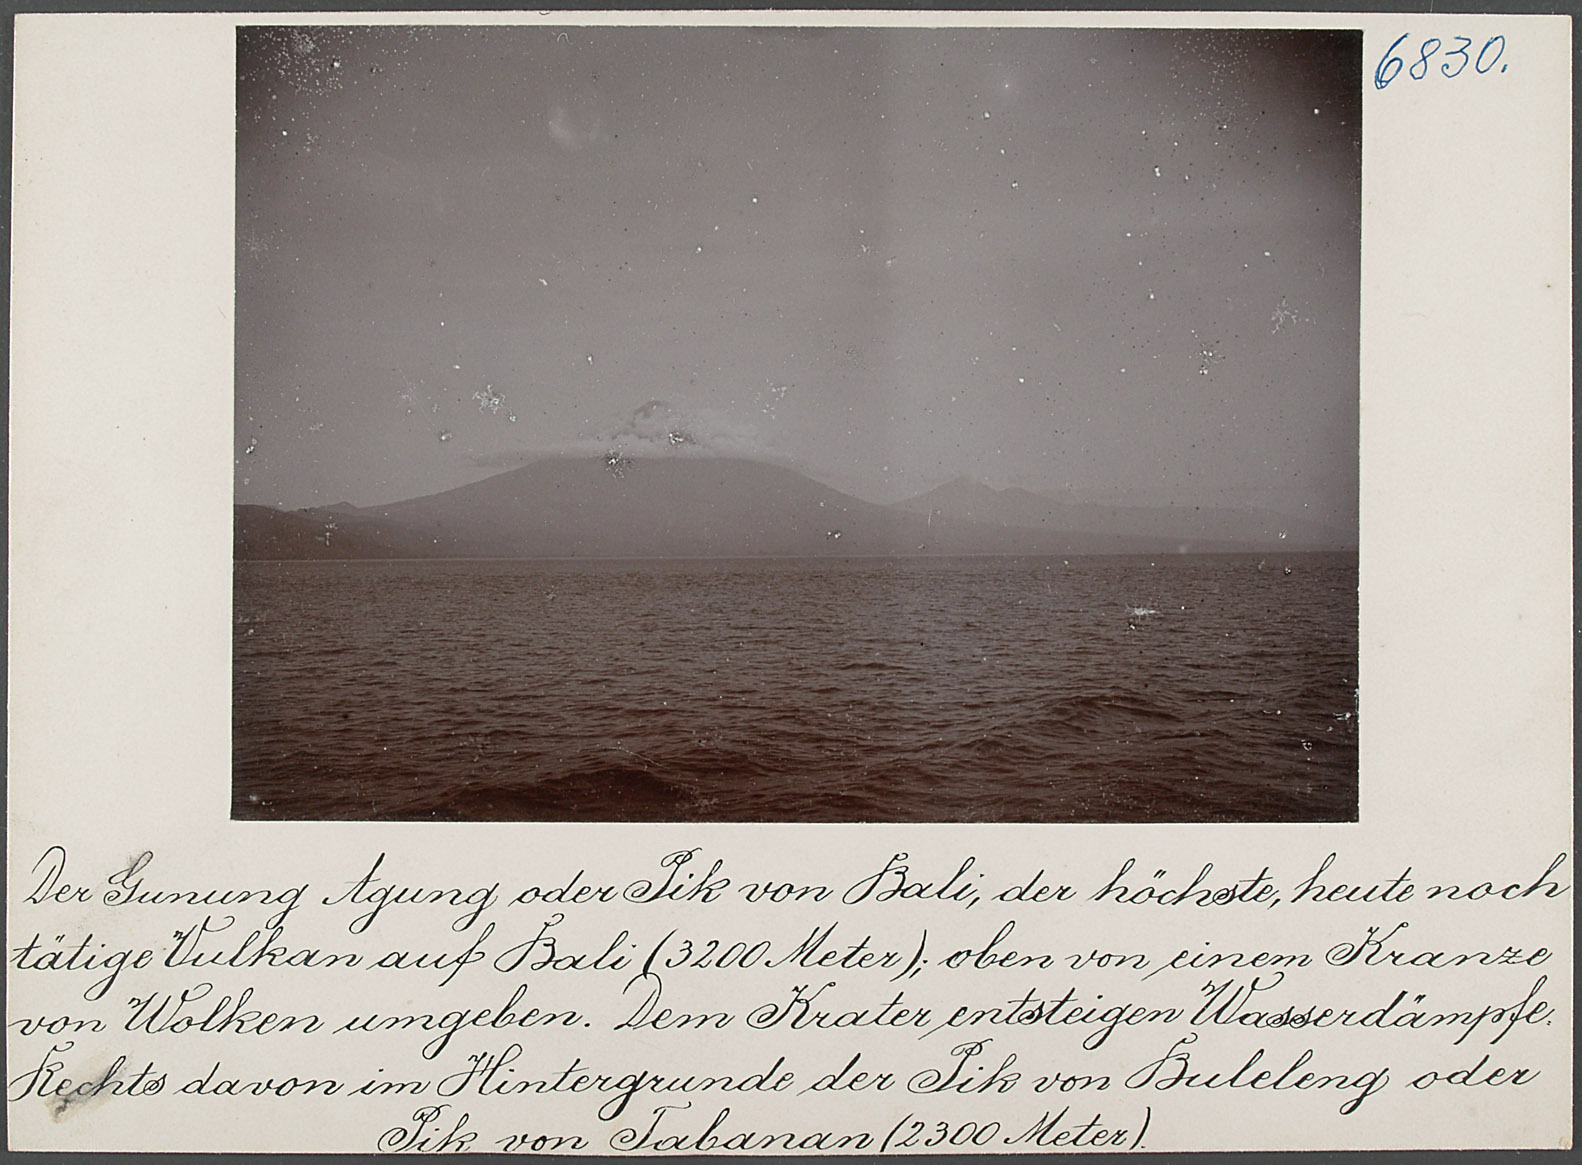 6830.
Der Gunung Agung oder Pik von Bali, der höchste, heute noch
tätige Vulkan auf Bali (3200 Meter); oben von einem Kranze
von Wolken umgeben. Dem Krater entsteigen Wasserdämpfe.
Rechts davon im Hintergrunde der Pik von Buleleng oder
Pik von Tabanan (2300 Meter).